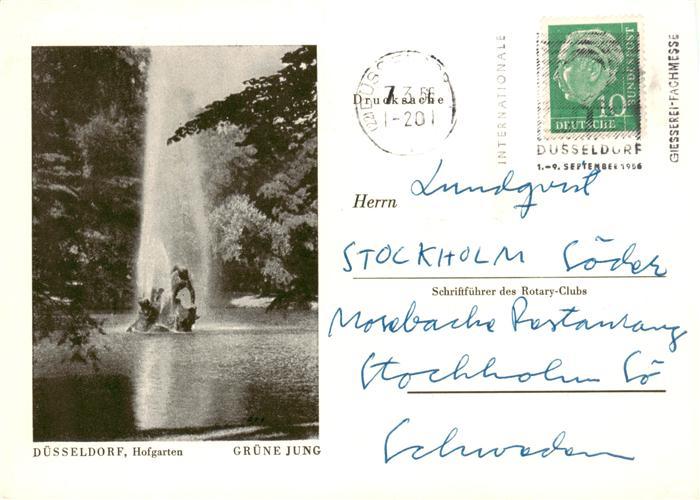 DÜSSELDORF, Hofgarten GRÜNE JUNG
7.3.56
1-201
Drucksache
INTERNATIONALE
GIESSEREI-FACHMESSE
DÜSSELDORF
1.-9. SEPTEMBER 1956
10
DEUTSCHE
BUNDESPOST
Herrn Lundqvist
STOCKHOLM Söder
Schriftführer des Rotary-Clubs
Mosebacke Restaurang
Stockholm Sö
Schweden